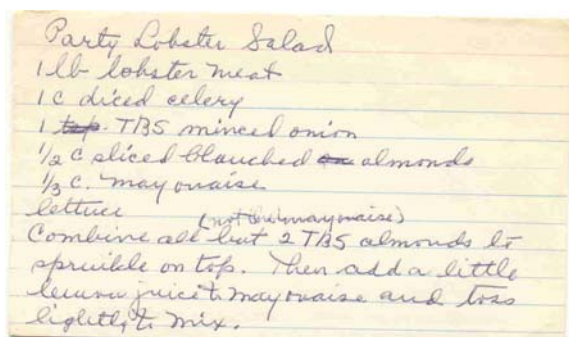 Party Lobster Salad
1 lb lobster meat
1 c diced celery
1 tsp. TBS minced onion
1/2 c sliced blanched almonds
1/3 c. mayonaise
lettuce
(not the mayonaise)
Combine all but 2 TBS almonds to
sprinkle on top. Then add a little
lemon juice to mayonaise and toss
lightly to mix.